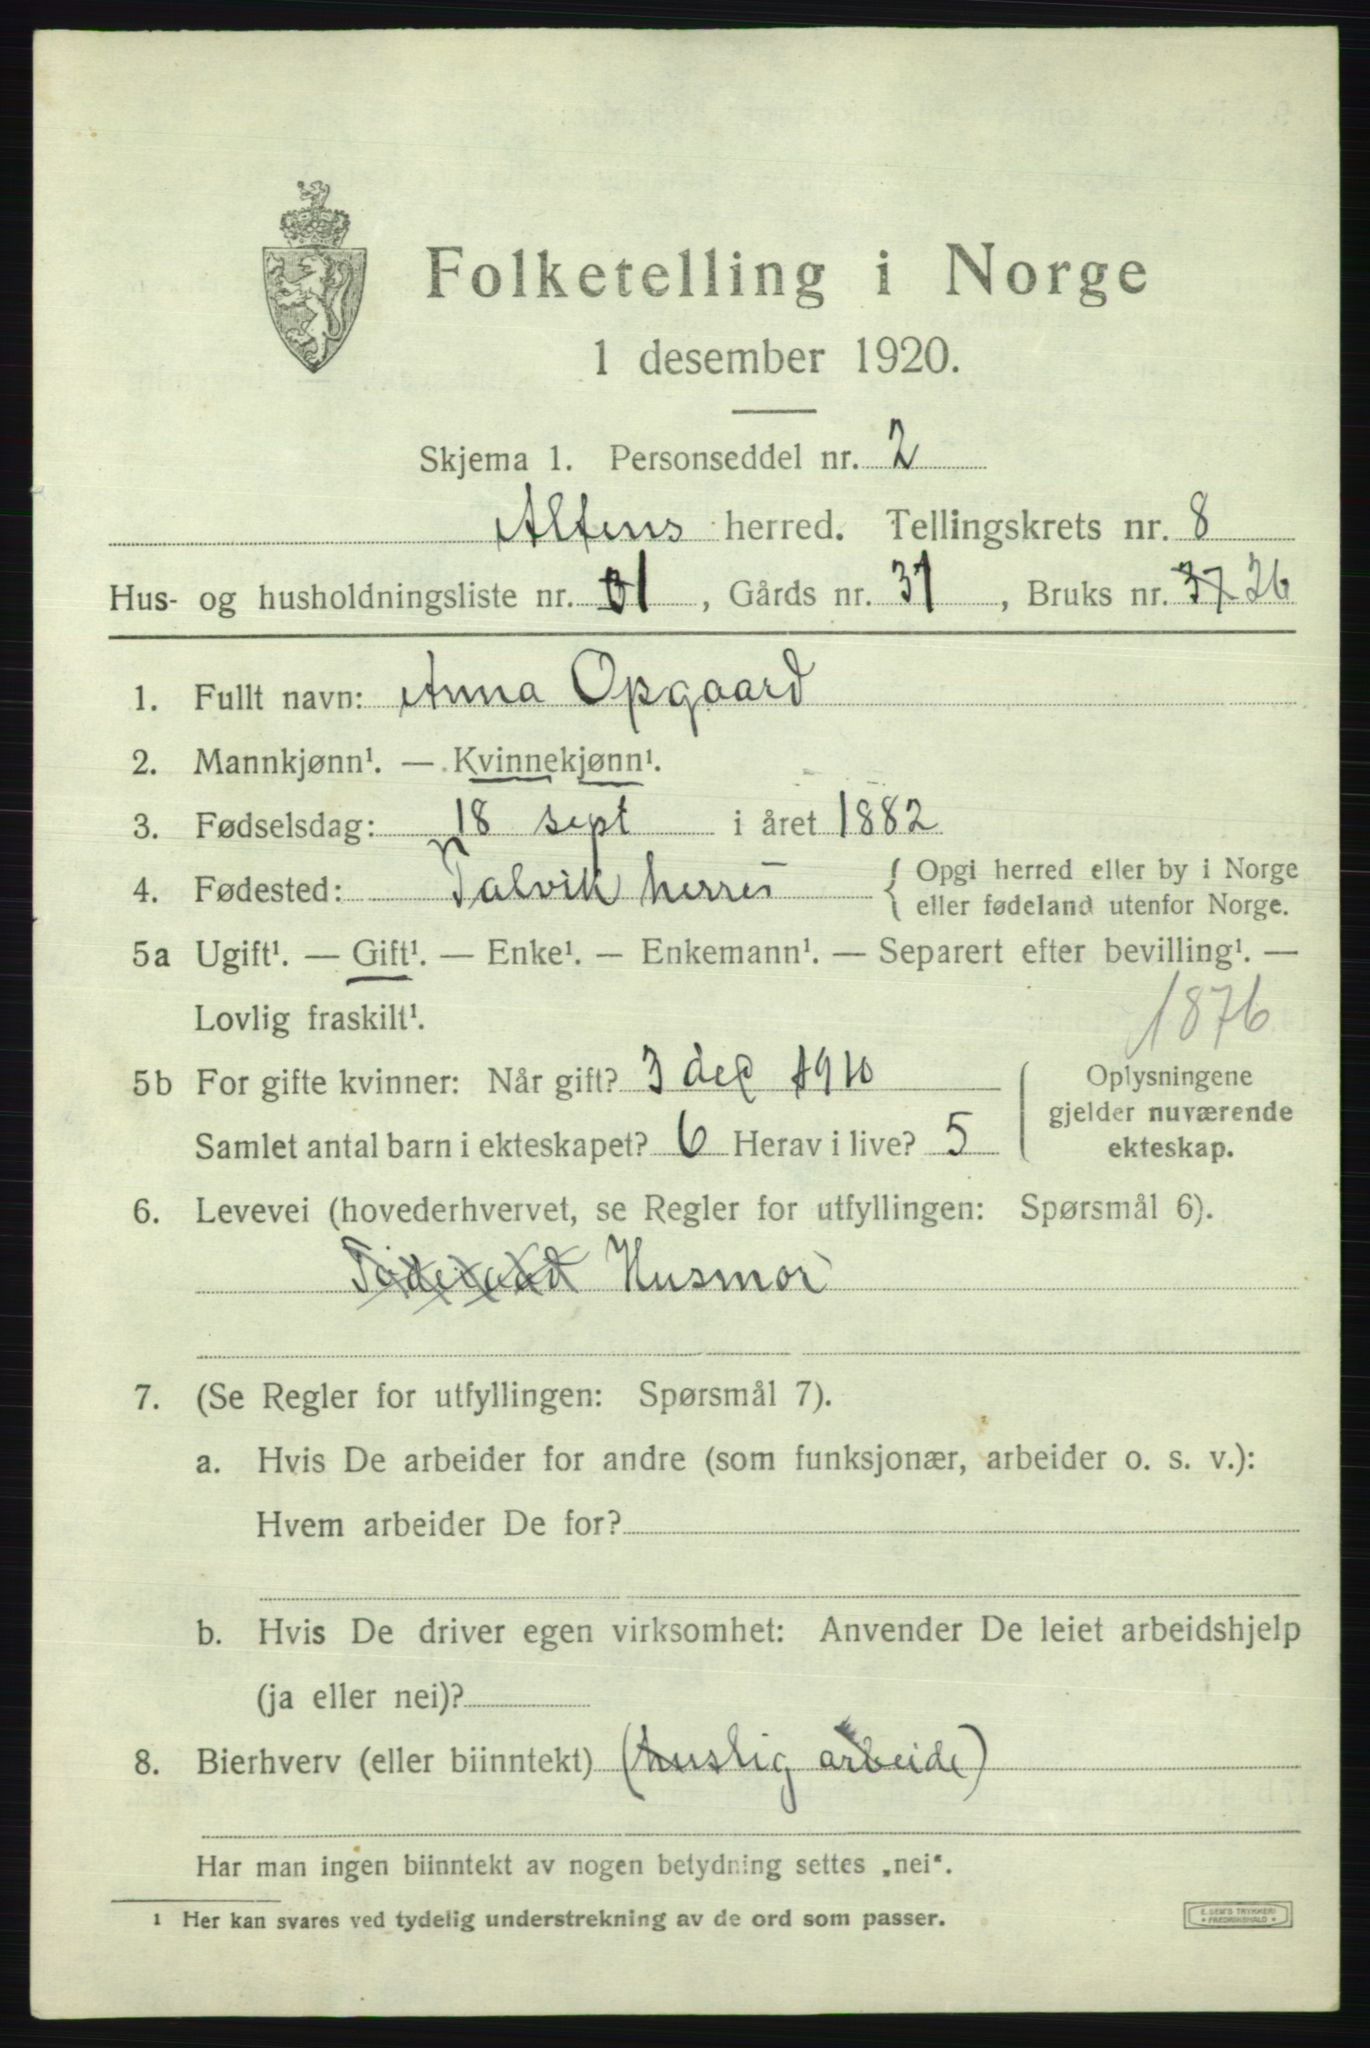 Folketelling i Norge
1 desember 1920.
Skjema 1. Personseddel nr. 2
Altens herred. Tellingskrets nr. 8
Hus- og husholdningsliste nr. 31, Gårds nr. 31, Bruks nr. 37 26
1. Fullt navn: Anna Opgaard
2. Mannkjønn¹. — Kvinnekjønn¹.
3. Fødselsdag: 18 sept i året 1882
4. Fødested: Talvik herred { Opgi herred eller by i Norge
eller fødeland utenfor Norge.
5a Ugift¹. — Gift¹. — Enke¹. — Enkemann¹. — Separert efter bevilling¹. —
Lovlig fraskilt¹.
1876
5b For gifte kvinner: Når gift? 3 dec 1910
Samlet antal barn i ekteskapet? 6 Herav i live? 5
Oplysningene
gjelder nuværende
ekteskap.
6. Levevei (hovederhvervet, se Regler for utfyllingen: Spørsmål 6).
Husmor
7. (Se Regler for utfyllingen: Spørsmål 7).
a. Hvis De arbeider for andre (som funksjonær, arbeider o. s. v.):
Hvem arbeider De for?
b. Hvis De driver egen virksomhet: Anvender De leiet arbeidshjelp
(ja eller nei)?
8. Bierhverv (eller biinntekt) (huslig arbeide)
Har man ingen biinntekt av nogen betydning settes „nei“.
¹ Her kan svares ved tydelig understrekning av de ord som passer.
E. SEM'S TRYKKERI
* FREDRIKSHALD *